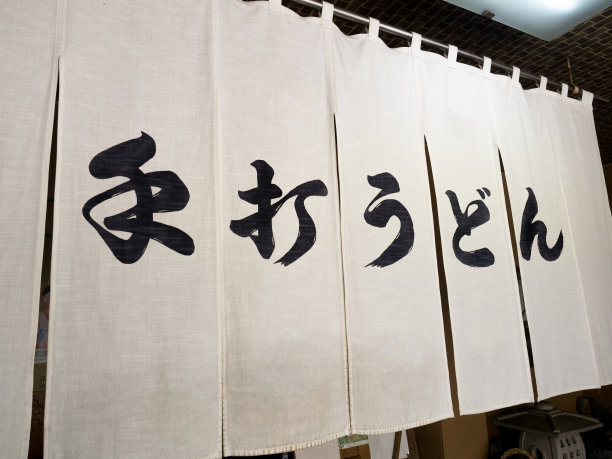 手打うどん